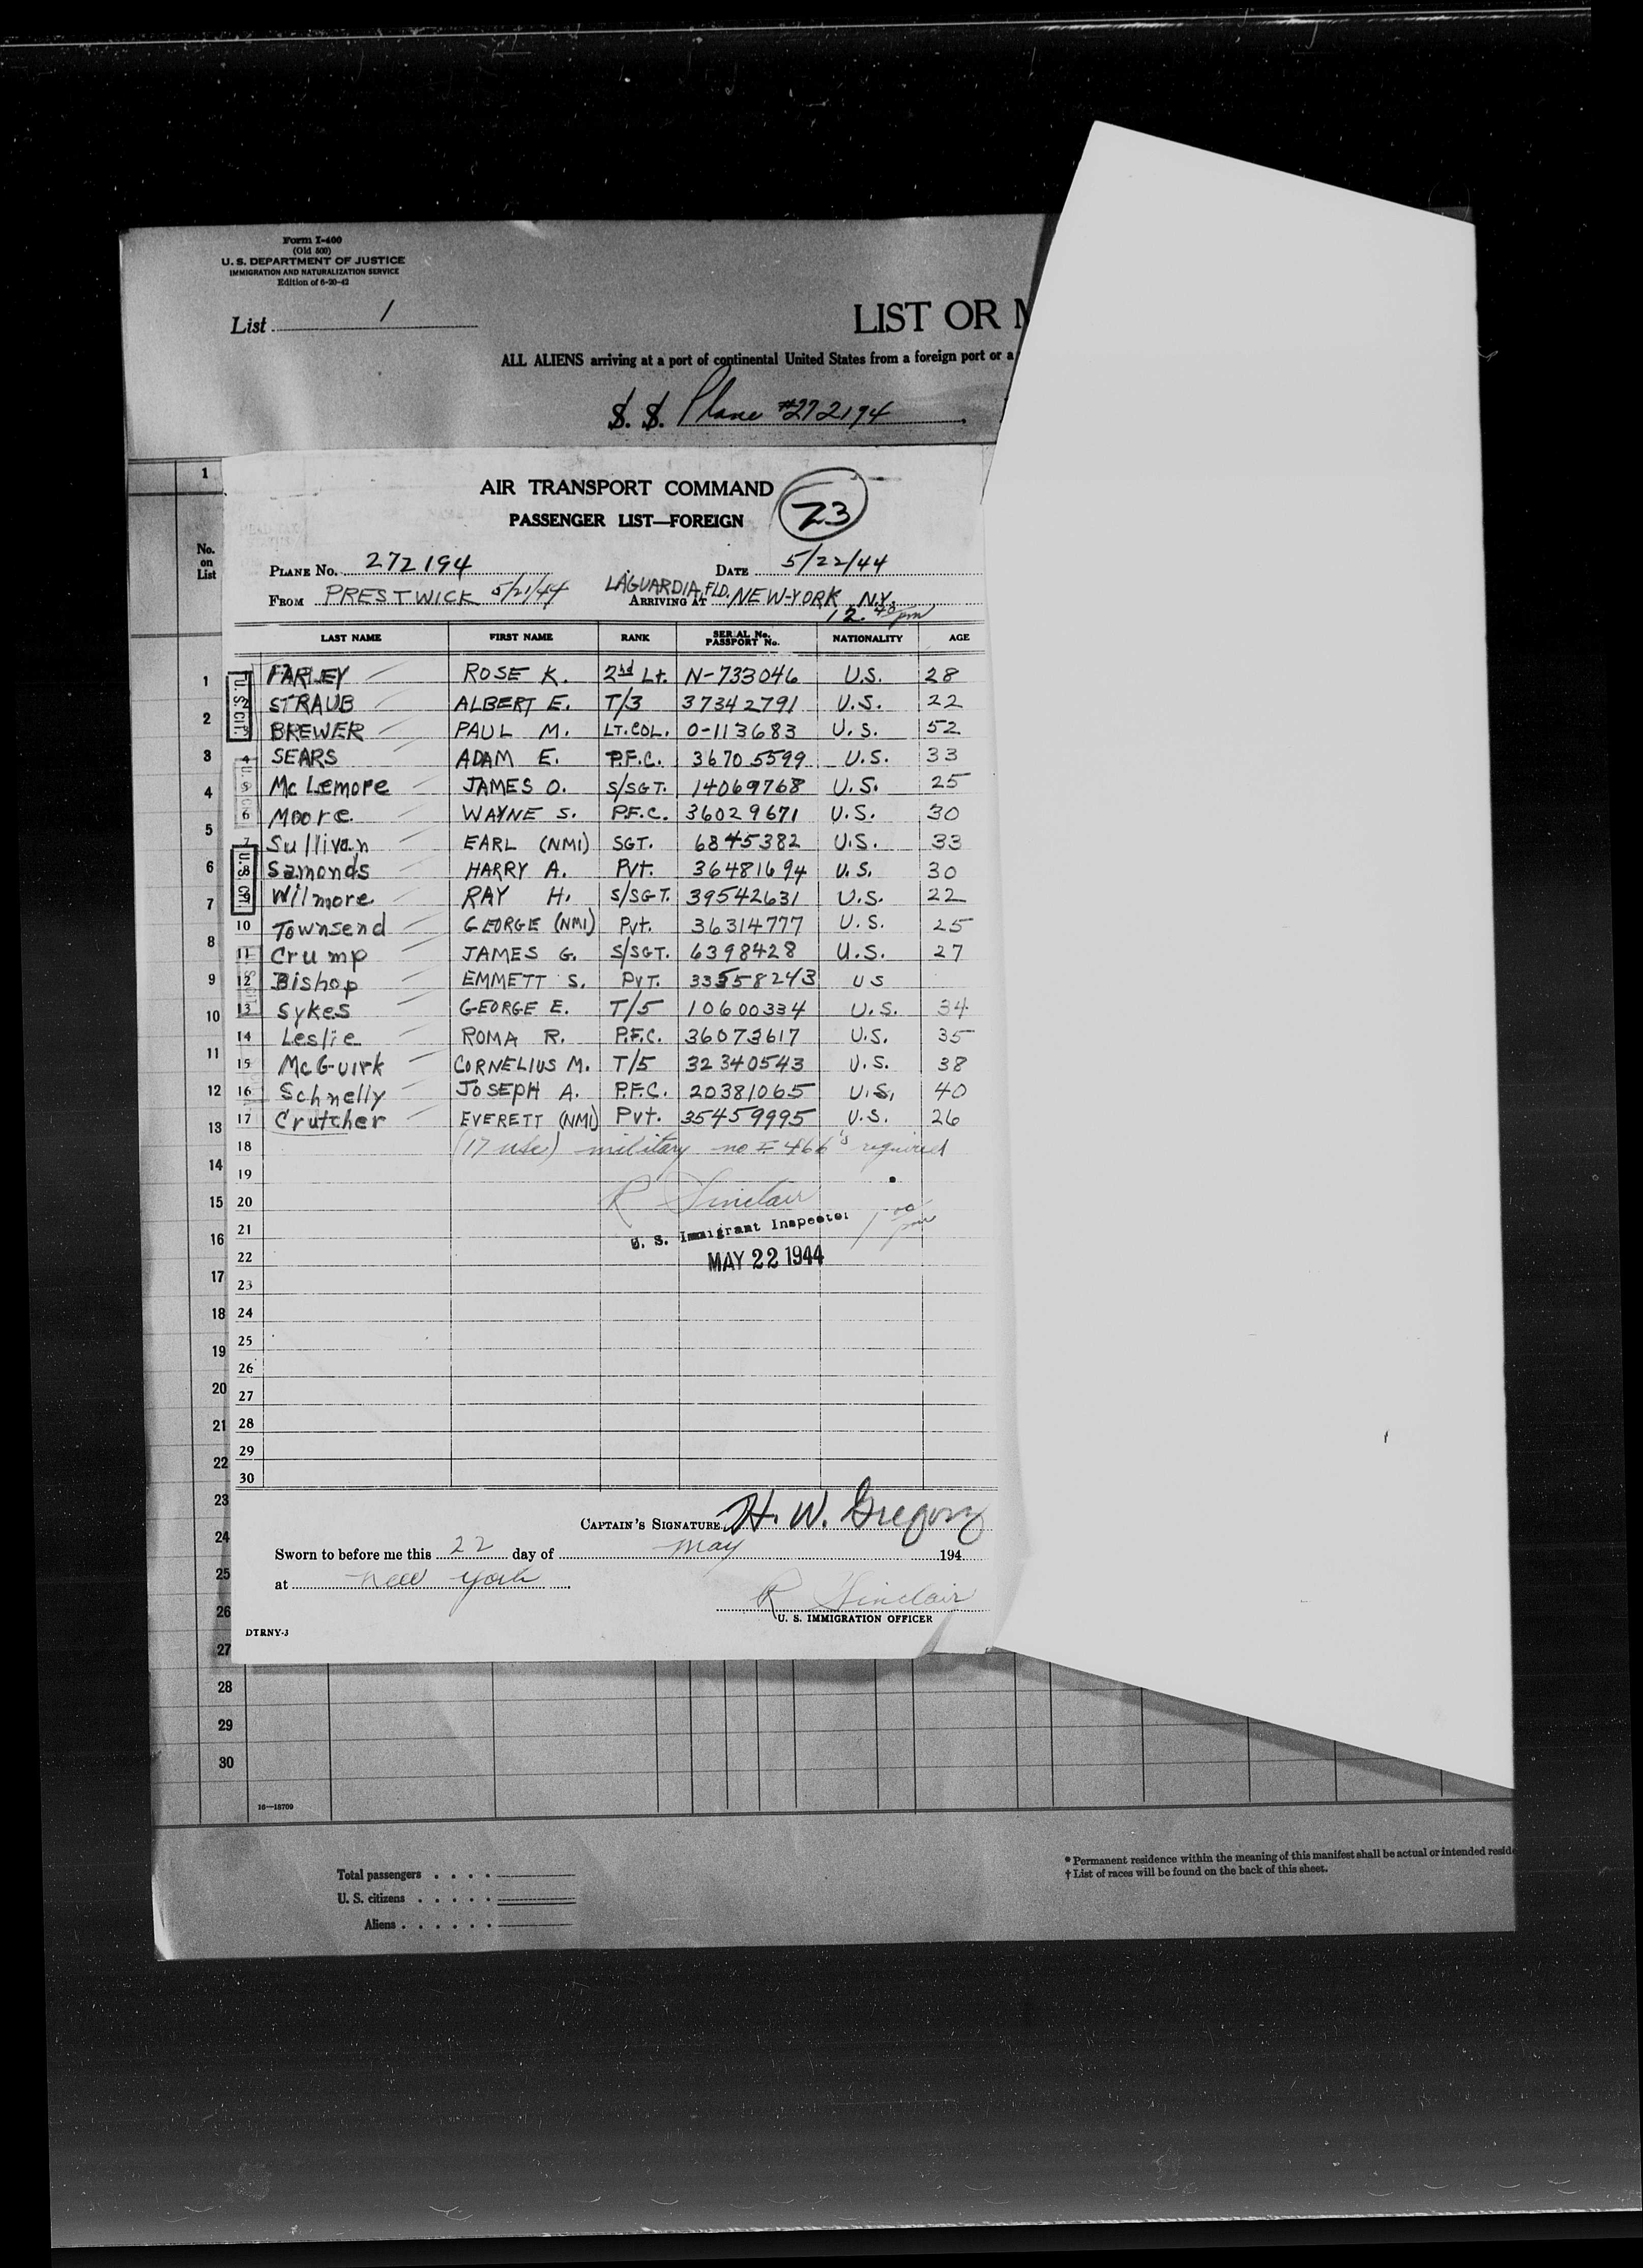 Form I-400
(Old 500)
U. S. DEPARTMENT OF JUSTICE
IMMIGRATION AND NATURALIZATION SERVICE
Edition of 6-20-42
List 1
LIST OR M
ALL ALIENS arriving at a port of continental United States from a foreign port or a
S. S. Plane #272194
1
No. on List
AIR TRANSPORT COMMAND
PASSENGER LIST—FOREIGN
23
PLANE No. 272194 DATE 5/22/44
FROM PRESTWICK 5/21/44 ARRIVING AT LAGUARDIA FLD. NEW-YORK N.Y.
12 40 pm
LAST NAME FIRST NAME RANK SERIAL No. PASSPORT No. NATIONALITY AGE
FARLEY ROSE K. 2nd Lt. N-733046 U.S. 28
STRAUB ALBERT E. T/3 37342791 U.S. 22
BREWER PAUL M. LT. COL. O-113683 U.S. 52
4 SEARS ADAM E. P.F.C. 36705599 U.S. 33
McLemore JAMES O. S/SGT. 14069768 U.S. 25
6 Moore WAYNE S. P.F.C. 36029671 U.S. 30
7 Sullivan EARL (NMI) SGT. 6845382 U.S. 33
Samonds HARRY A. Pvt. 36481694 U.S. 30
Wilmore RAY H. S/SGT. 39542631 U.S. 22
10 Townsend GEORGE (NMI) Pvt. 36314777 U.S. 25
11 Crump JAMES G. S/SGT. 6398428 U.S. 27
12 Bishop EMMETT S. PVT. 33558243 US
13 Sykes GEORGE E. T/5 10600334 U.S. 34
14 Leslie ROMA R. P.F.C. 36073617 U.S. 35
15 McGuirk CORNELIUS M. T/5 32340543 U.S. 38
16 Schnelly JOSEPH A. P.F.C. 20381065 U.S. 40
17 Crutcher EVERETT (NMI) Pvt. 35459995 U.S. 26
18 (17 usc) military no I-466's required
19
20 R Sinclair
21 U. S. Immigrant Inspector 1 00 pm
22 MAY 22 1944
23
24
25
26
27
28
29
30
U.S. CIT.
U.S. CIT.
1
2
3
4
5
6
7
8
9
10
11
12
13
14
15
16
17
18
19
20
21
22
23
24
25
26
27
28
29
30
CAPTAIN'S SIGNATURE H. W. Gregory
Sworn to before me this 22 day of May 194
at New York
R Sinclair
U. S. IMMIGRATION OFFICER
DTRNY-3
16—18709
Total passengers
U. S. citizens
Aliens
* Permanent residence within the meaning of this manifest shall be actual or intended resid
† List of races will be found on the back of this sheet.